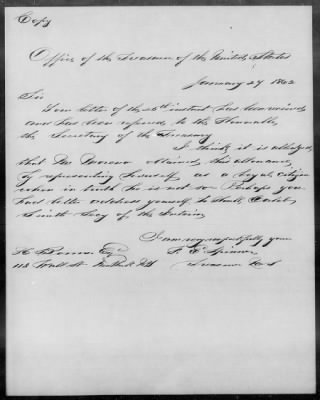 Copy
Office of the Treasurer of the United States
January 27 1862
Sir
Your letter of the 25th instant has been received
and has been referred to the Honorable
the Secretary of the Treasury
I think it is alledged,
that Mr Moreno obtained this allowance
by representing himself as a loyal citizen
when in truth he is not so Perhaps you
had better address yourself to Honl. Caleb
Smith Secy of the Interior
I am very respectfully your
F. E. Spinner
Treasurer U S
Esqr
113 Wall St. New York